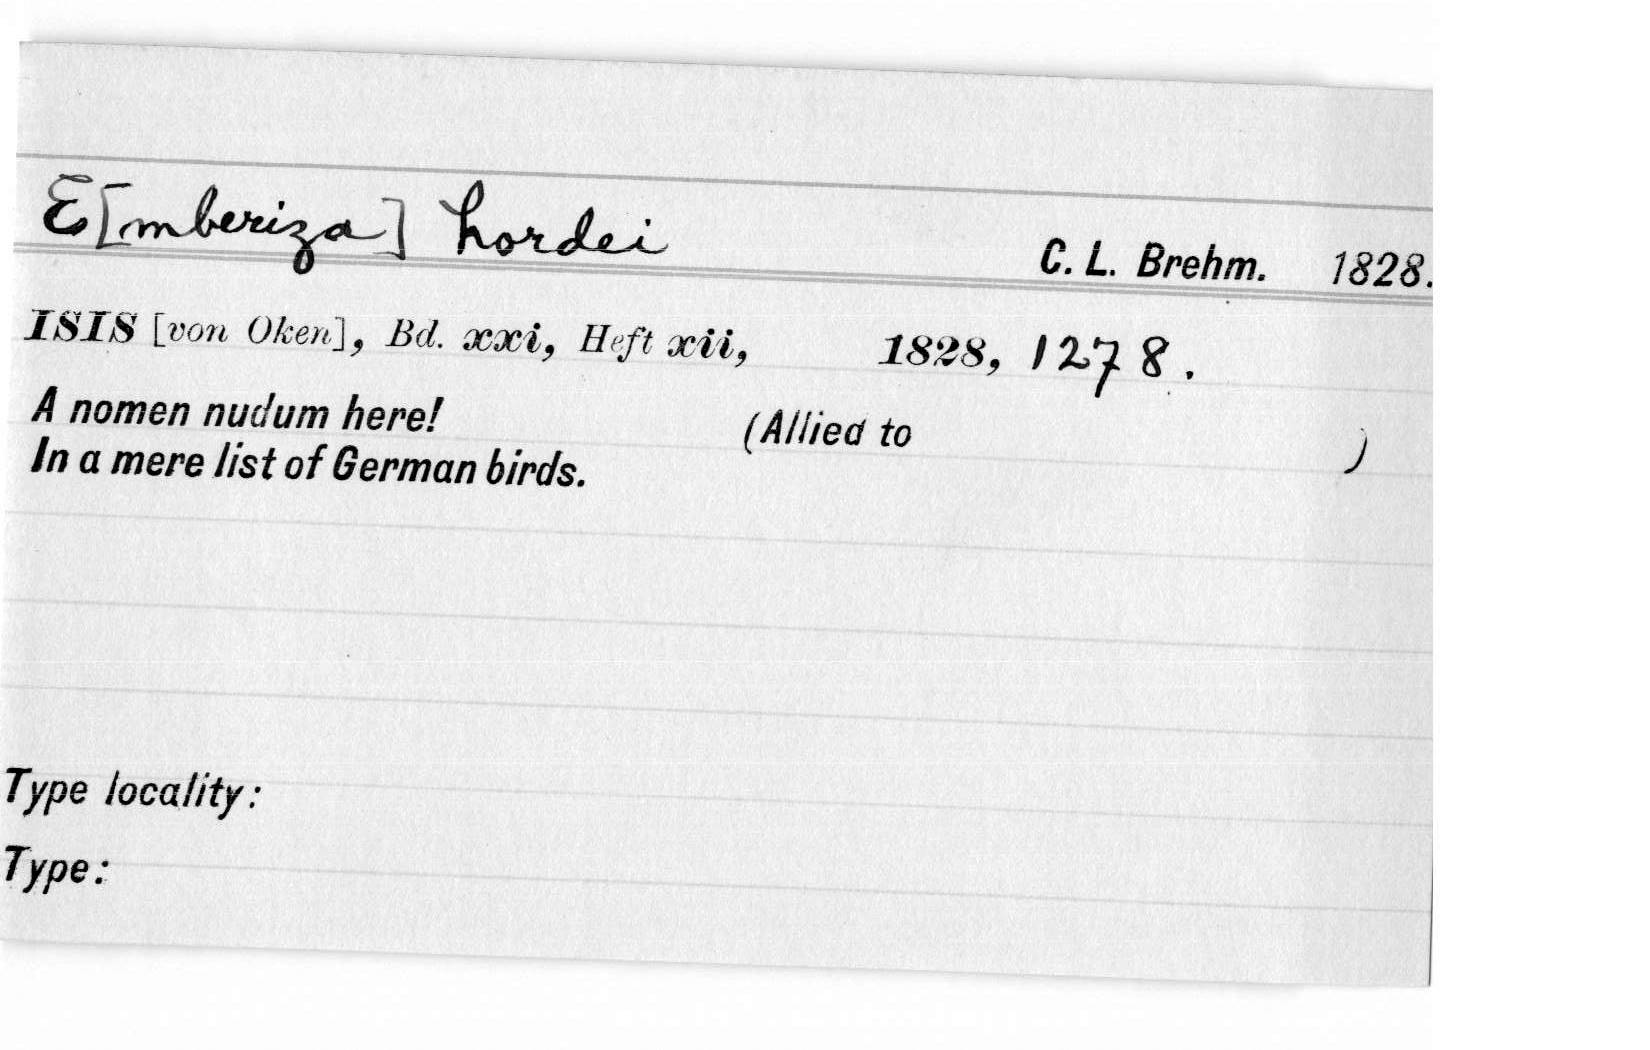 E[mberiza] hordei C. L. Brehm. 1828.
ISIS [von Oken], Bd. xxi, Heft xii, 1828, 1278.
A nomen nudum here! (Allied to )
In a mere list of German birds.
Type locality:
Type: